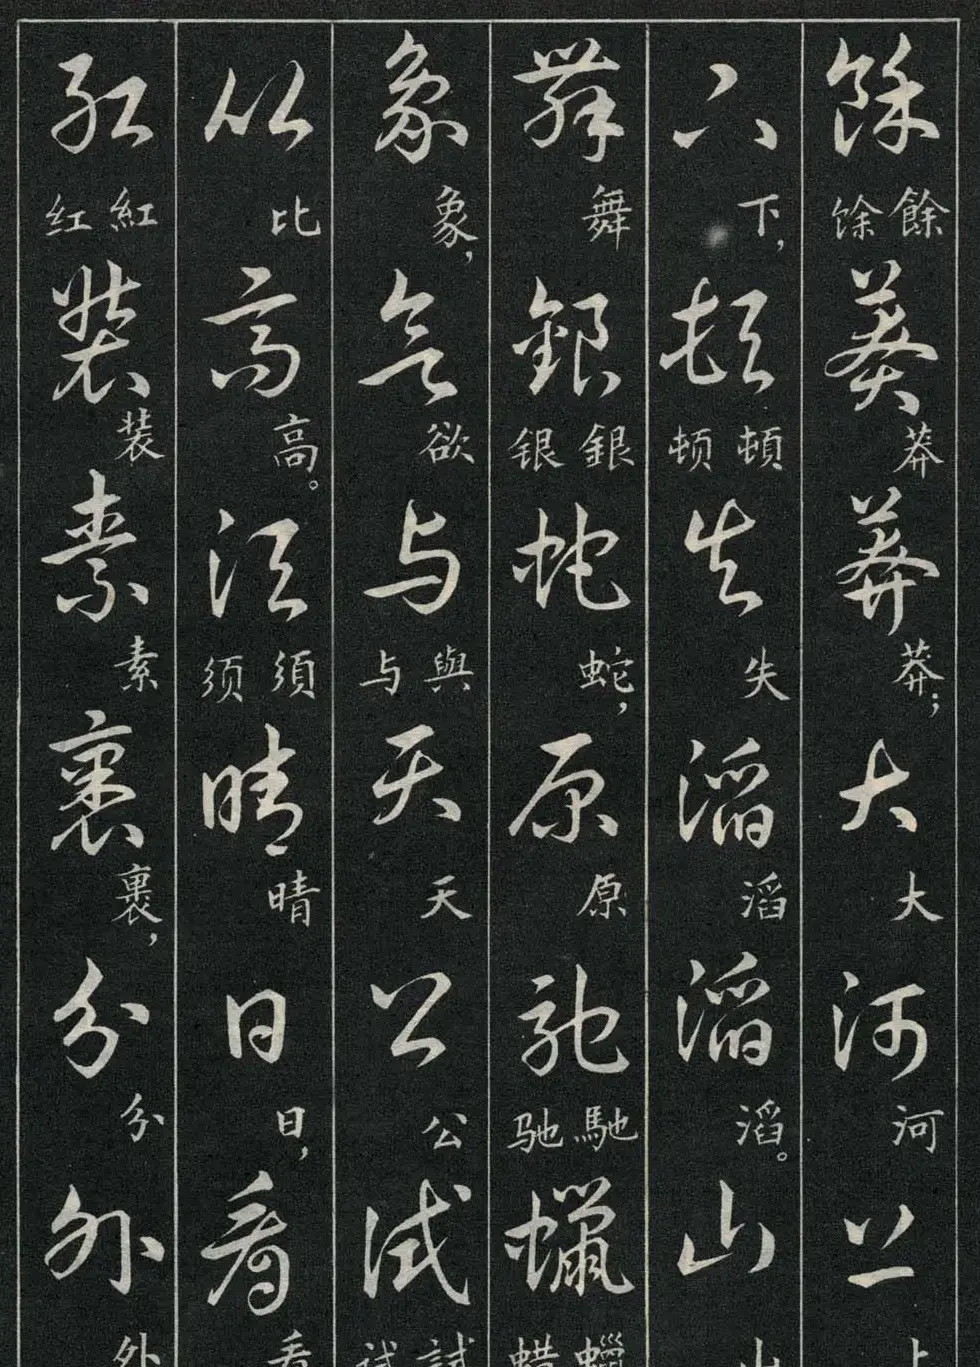 餘 餘馀 莽 莽 莽 莽; 大 大 河 河 上 上
下 下, 頓 頓顿 失 失 滔 滔 滔 滔。 山 山
舞 舞 銀 銀银 蛇 蛇, 原 原 馳 馳驰 蠟 蠟蜡
象 象, 欲 欲 与 與与 天 天 公 公 試 試试
比 比 高 高。 須 須须 晴 晴 日 日, 看 看
紅 紅红 装 装 素 素 裹 裹, 分 分 外 外